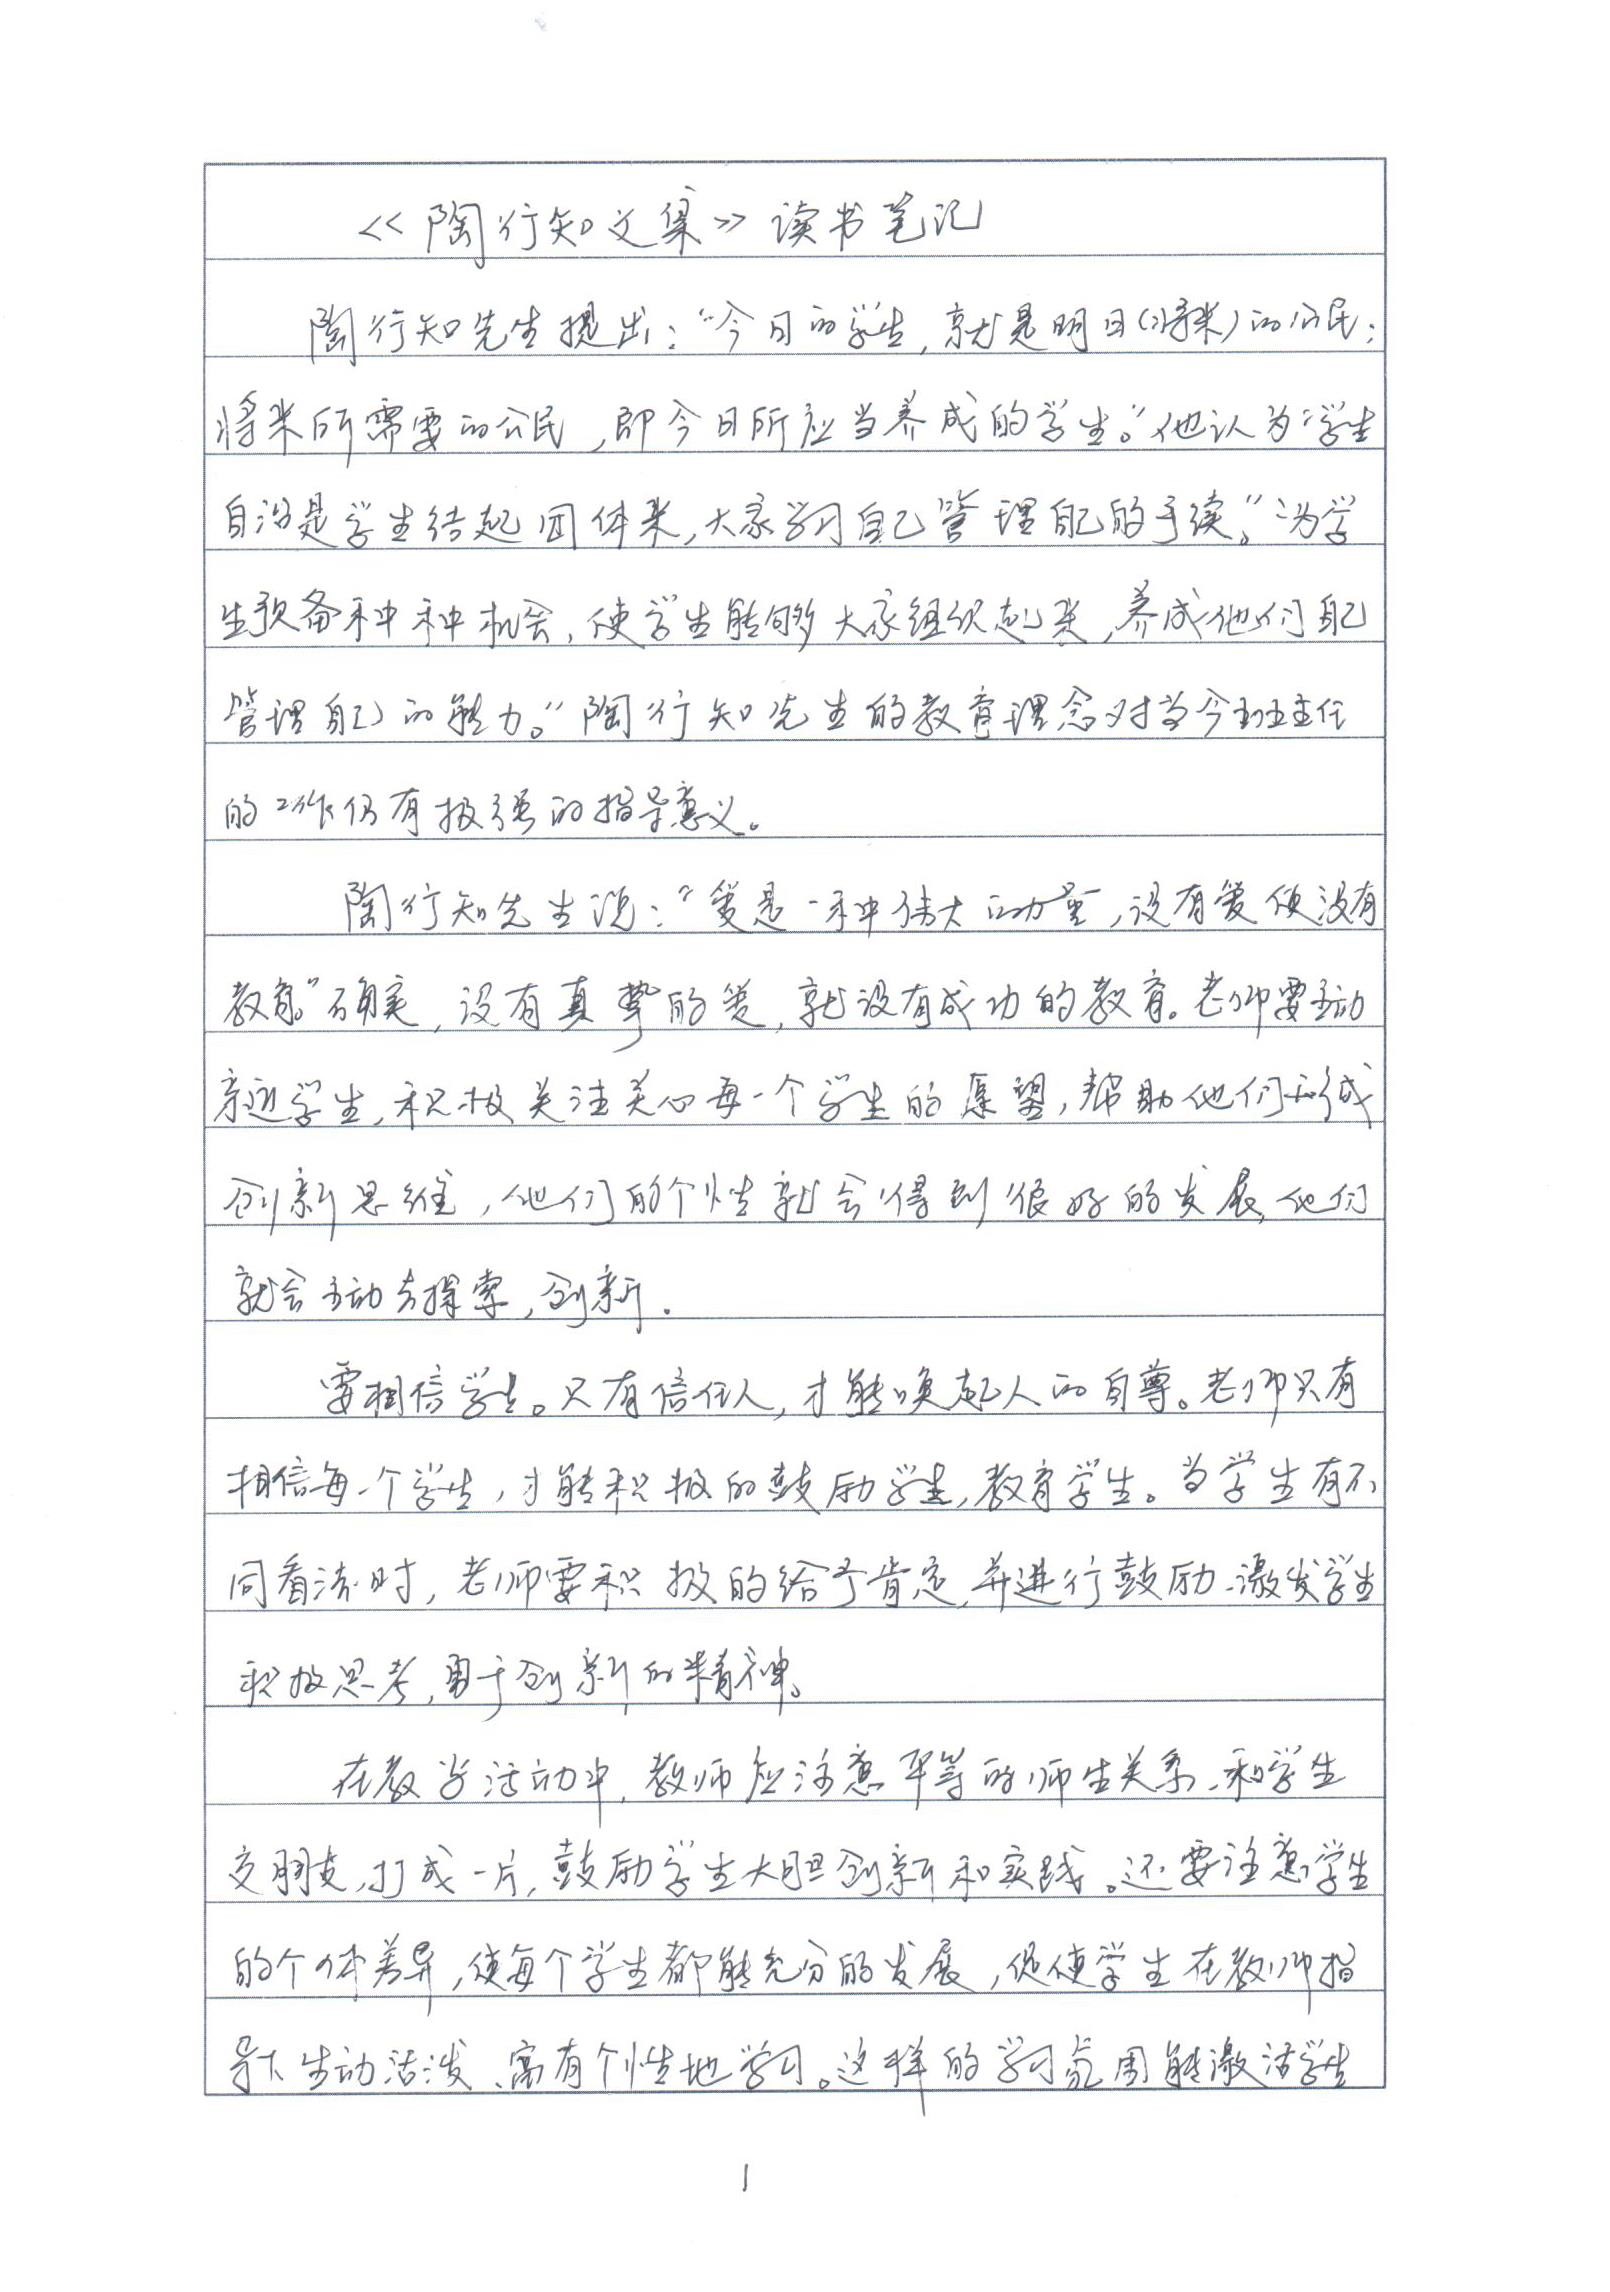 《陶行知文集》读书笔记
陶行知先生提出：“今日的学生，就是明日（将来）的公民；
将来所需要的公民，即今日所应当养成的学生。”他认为：“学生
自治是学生结起团体来，大家学习自己管理自己的手续。”“为学
生预备种种机会，使学生能够大家组织起来，养成他们自己
管理自己的能力。”陶行知先生的教育理念对当今班主任
的工作仍有极强的指导意义。
陶行知先生说：“爱是一种伟大的力量，没有爱便没有
教育。”确实，没有真挚的爱，就没有成功的教育。老师要主动
亲近学生，积极关注关心每一个学生的愿望，帮助他们形成
创新思维，他们的个性就会得到很好的发展，他们
就会主动去探索，创新。
要相信学生。只有信任人，才能唤起人的自尊。老师只有
相信每一个学生，才能积极的鼓励学生，教育学生。当学生有不
同看法时，老师要积极的给予肯定，并进行鼓励、激发学生
积极思考，勇于创新的精神。
在教学活动中，教师应注意平等的师生关系、和学生
交朋友，打成一片，鼓励学生大胆创新和实践。还要注意学生
的个体差异，使每个学生都能充分的发展，促使学生在教师指
导下生动活泼、富有个性地学习。这样的学习氛围能激活学生
1